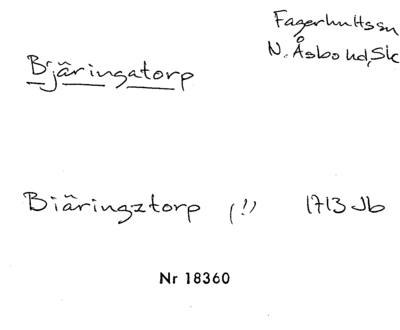 Fagerhultssn
N. Åsbo hd, Sk
Bjäringatorp
Biäringztorp (!) 1713 Jb
Nr 18360